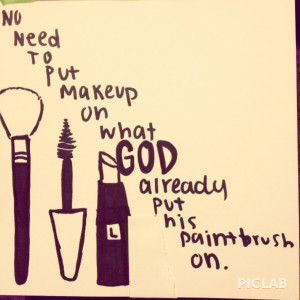 No
Need
To
Put
makeup
on
what
GOD
already
put
his
paintbrush
on.
L
PICLAB